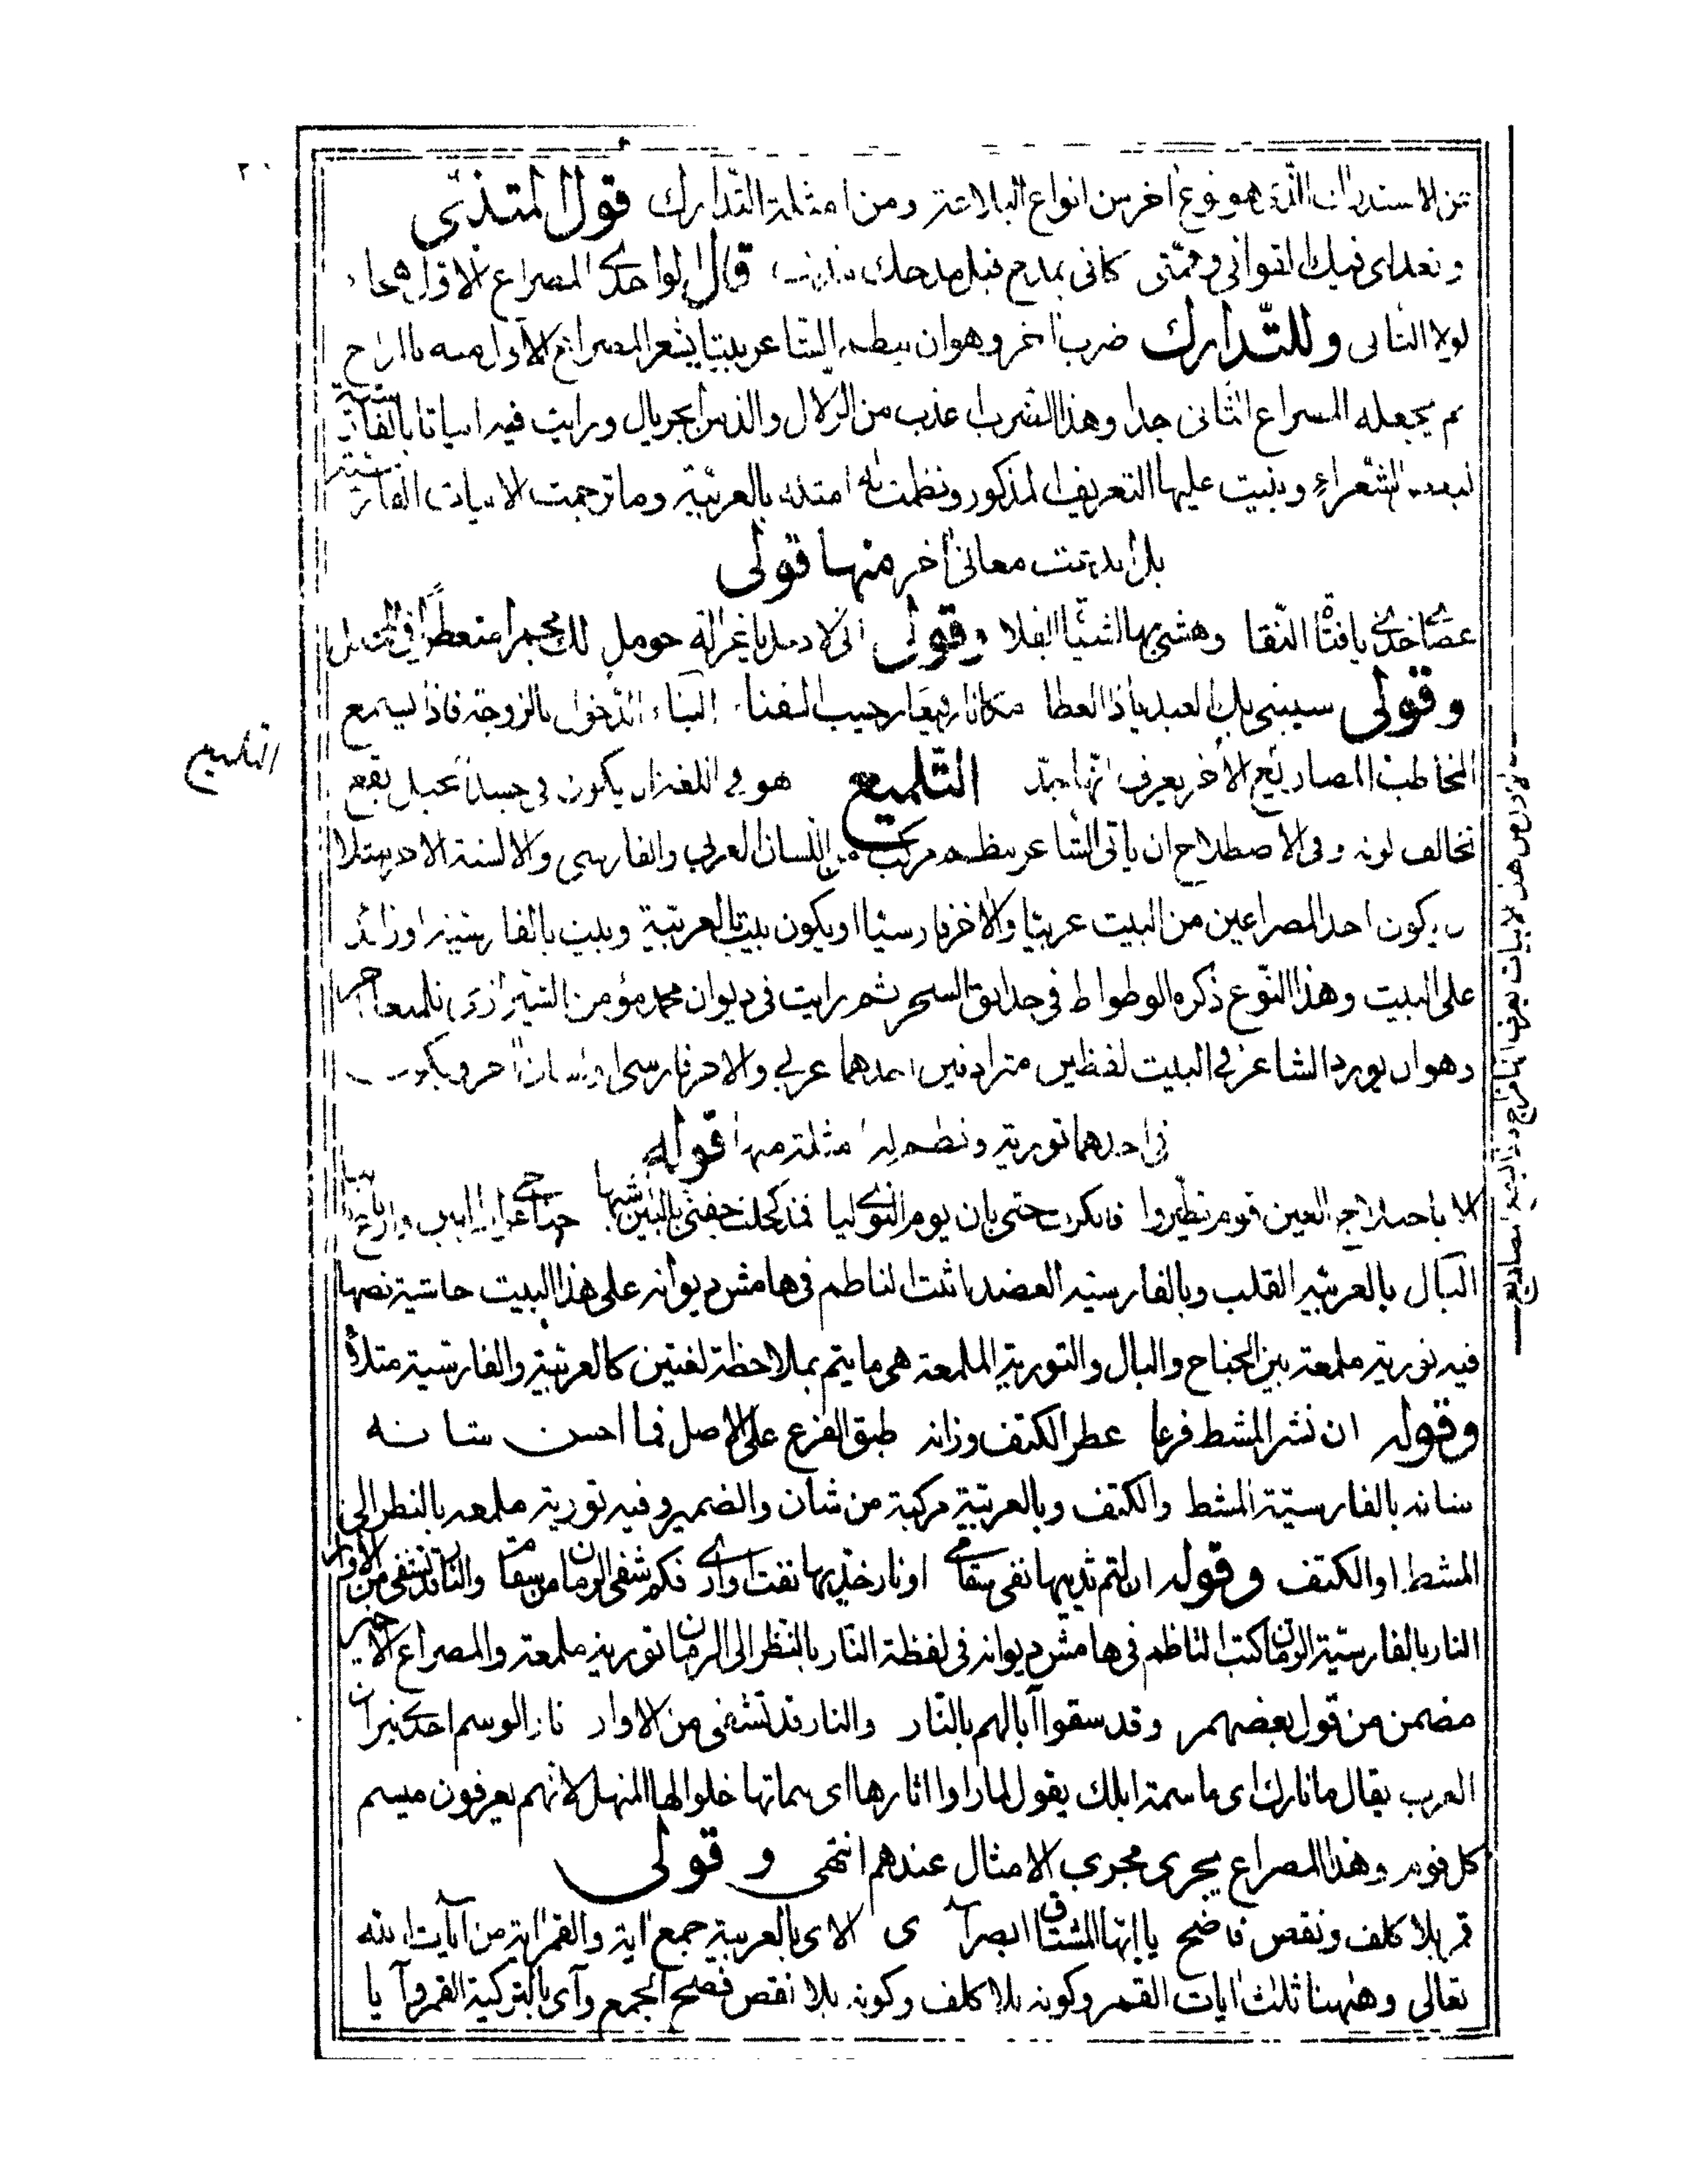 من الاستدراك الذى هو نوع اخر من انواع البلاغة ومن امثلة التدارك قول المتنبى
وتعذلنى فيك القوافى وهمتى كانى بمدح قبل مدحك مذنب قال الواحدى المصراع الاول هجاء
لولا الثانى وللتدارك ضرب اخر وهو ان ينظم الشاعر بيتا يشعر المصراع الاول منه بالمزاح
ثم يجعله المصراع الثانى جدا وهذا الضرب اعذب من الزلال والذ من الجريال ورايت فيه ابياتا بالفارسية
لبعض الشعراء وبنيت عليها التعريف المذكور ونظمت له امثلة بالعربية وما ترجمت الابيات الفارسية
بل ابدعت معانى اخر منها قولى
عصا خذى يا فتاة النقا وهشى بها الشياه الفلا وقولى يا غزالة حومل
وقولى سيبنى بك العبد يا ذا العطا مكانا رفيعا رحيب الفناء البناء الدخول بالزوجة فاذا يسمع
المخاطب المصاريع الاخر يعرف انها جد التلميع هو فى اللغة ان يكون فى جسد الخيل بقع
تخالف لونه وفى الاصطلاح ان يأتى الشاعر بنظم مركب من اللسان العربى والفارسى والالسنة الاخر مثلا
يكون احد المصراعين من البيت عربيا والاخر فارسيا او يكون بيت بالعربية وبيت بالفارسية او زائد
على البيت وهذا النوع ذكره الوطواط فى حدائق السحر ثم رايت فى ديوان محمد مؤمن الشيرازى تلميعا اخر
وهو ان يورد الشاعر فى البيت لفظين مترادفين احدهما عربى والاخر فارسى او لسان اخر ويكون
فى احدهما تورية ونظم له امثلة منها قوله
الا يا حداج العين قوم تطيروا فانكرت حتى بان يوم النوى ليا فمذ كحلت جفنى بالبين شهبها جناحى غراب البين
البال بالعربية القلب وبالفارسية العضد اثبت الناظم فى هامش ديوانه على هذا البيت حاشية نصها
فيه تورية ملمعة بين الجناح والبال والتورية الملمعة هى ما يتم بملاحظة لغتين كالعربية والفارسية مثلا
وقوله ان نشر المشط فرعا عطر الكتف وزانه طبق الفرع على الاصل فما احسن شانه
شانه بالفارسية المشط والكتف وبالعربية مركبة من شان والضمير وفيه تورية ملمعة بالنظر الى
المشط او الكتف وقوله ان لثم ثدييها نفى سقامى او نار خديها نفت اوارى فكم شفى الرمان من سقام والنار قد تشفى من الاوار
النار بالفارسية الرمان كتب الناظم فى هامش ديوانه فى لفظة النار بالنظر الى الرمان تورية ملمعة والمصراع الاخير
مضمن من قول بعضهم وقد سقوا آبالهم بالنار والنار قد تشفى من الاوار نار الوسم احدى نيران
العرب يقال ما نارك اى ما سمة ابلك يقول لما راوا اثارها اى سماتها خلوا لها المنهل لانهم يعرفون ميسم
كل قوم وهذا المصراع يجرى مجرى الامثال عندهم انتهى وقولى
قمر بلا كلف ونقص فاضح يا ايها المشتاق ابصر آى الآى بالعربية جمع اية والقمر اية من آيات الله
تعالى وههنا ثلث ايات القمر وكونه بلا كلف وكونه بلا نقص فصح الجمع وآى بالتركية القمر وآيا
التلميع
لان من هذه الابيات يعرف انها مزاح وتاليه المصاريع